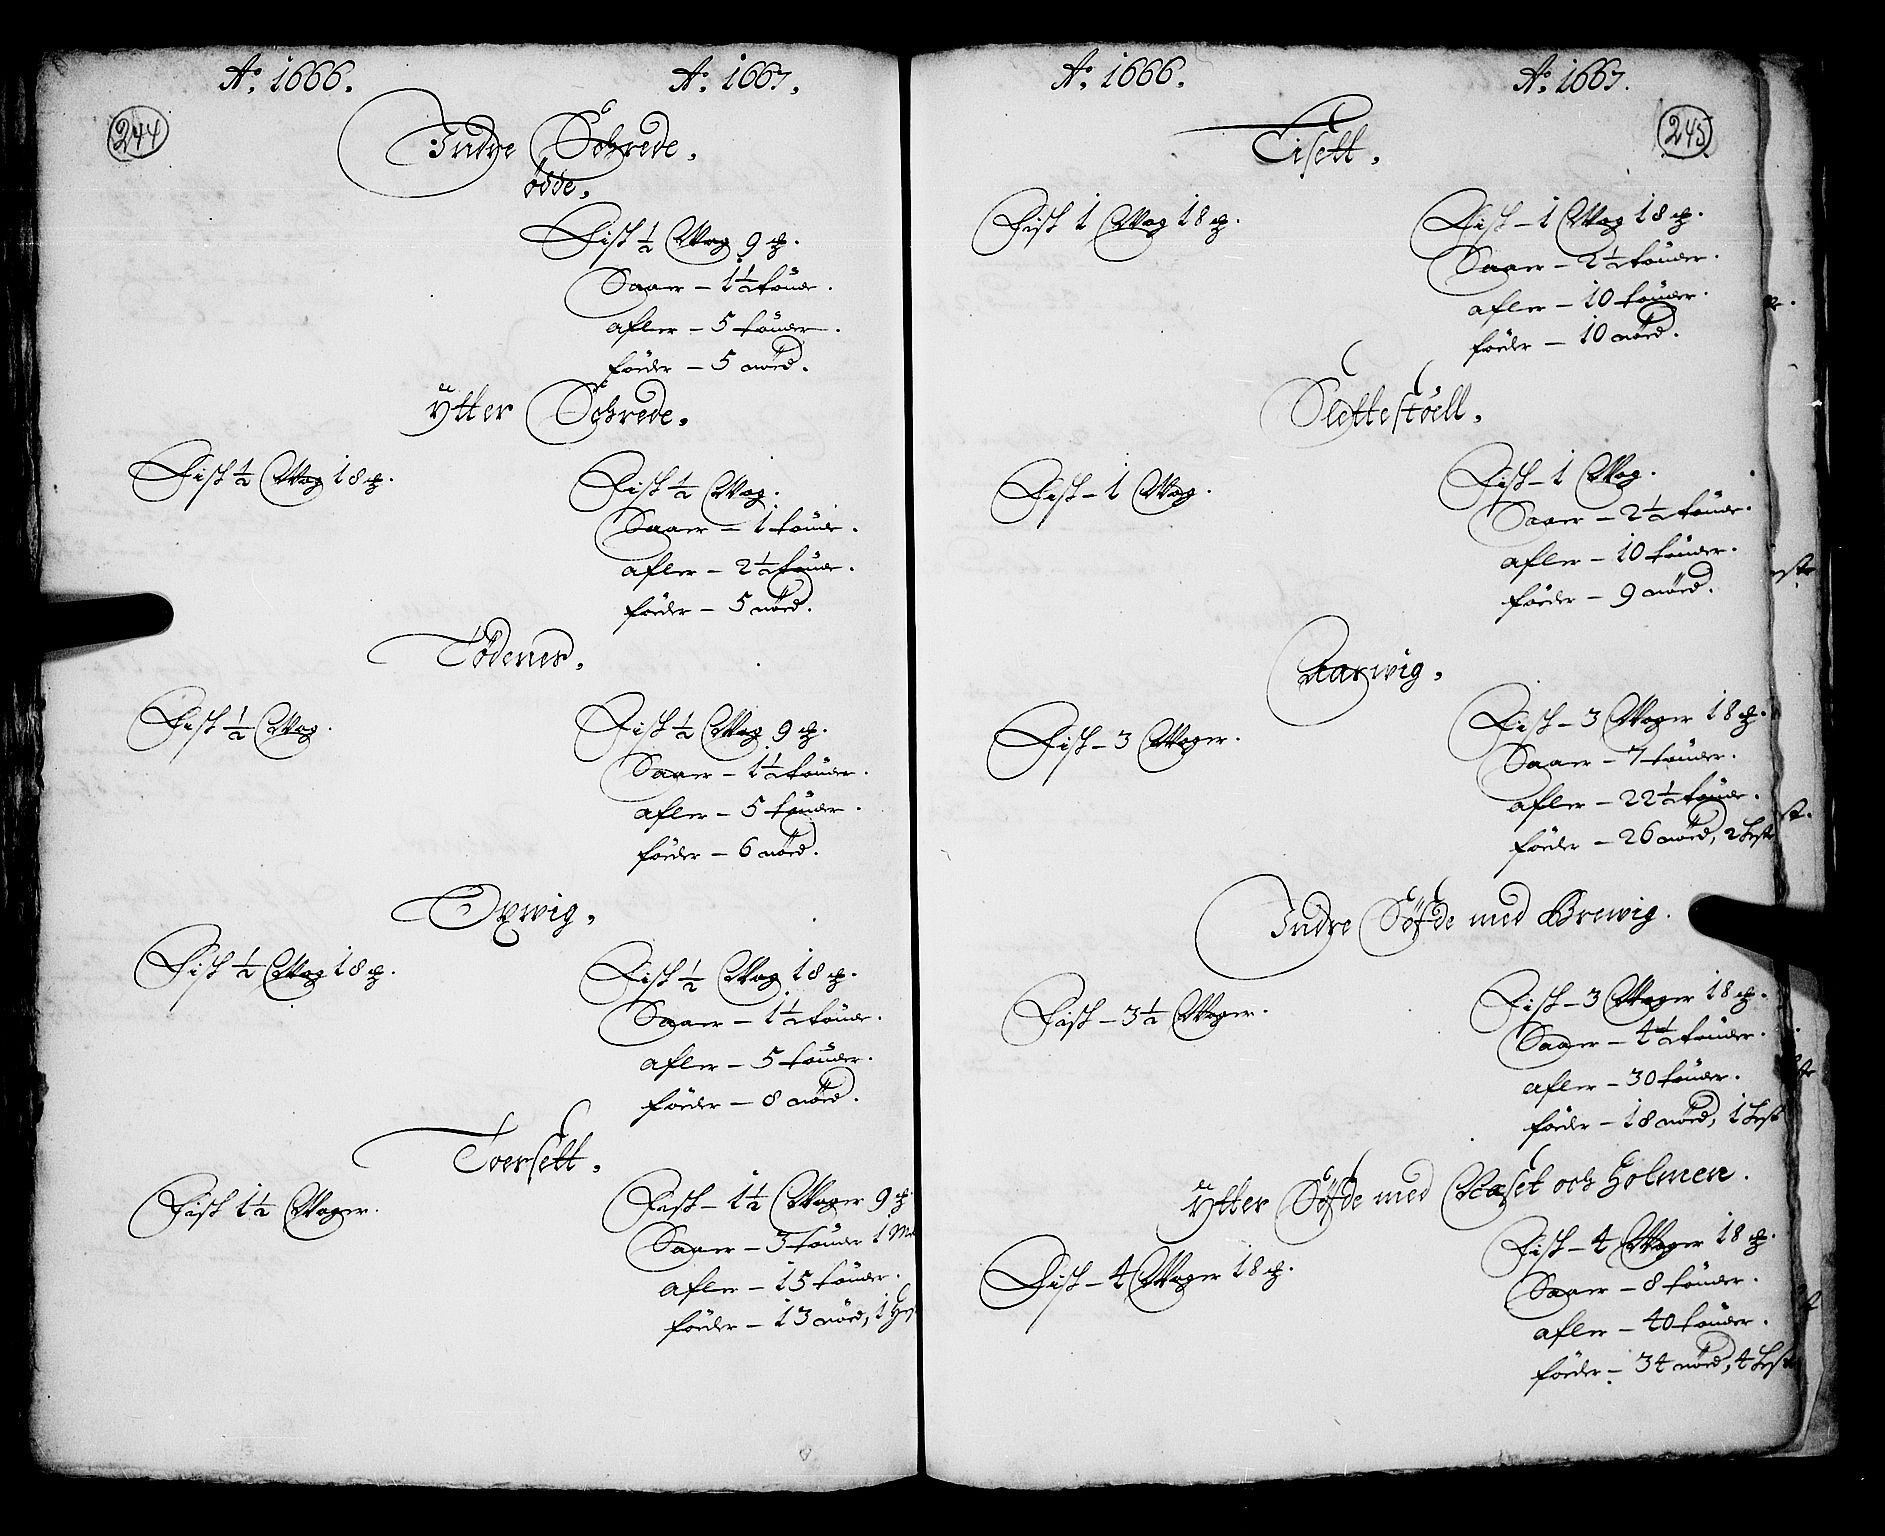 Aº. 1666. Aº. 1667.
244
Indre Schrede.
Ödde.
Fisk ½ Wog 9 ℔.
Saaer – 1½ tönde.
afler – 5 tönder.
föeder – 5 nöed.
Ytter Schrede.
Fisk ½ Wog 18 ℔. Fisk ½ Wog.
Saaer – 1 tönde.
afler – 2½ tönde.
föeder – 5 nöed.
Tödenes.
Fisk ½ Wog. Fisk ½ Wog 9 ℔.
Saaer – 1½ tönder.
afler – 5 tönder.
föeder – 6 nöed.
Oxwig.
Fisk ½ Wog 18 ℔. Fisk ½ Wog 18 ℔.
Saaer – 1½ tönde.
afler – 5 tönder.
föeder – 8 nöed.
Toersett.
Fisk 1½ Woger. Fisk – 1½ Woger 9 ℔.
Saaer – 3 tönder 1
afler – 15 tönder.
föeder – 13 nöed, 1
Aº. 1666. Aº. 1667.
245
Eisett.
Fisk 1 Wog 18 ℔. Fisk – 1 Wog 18 ℔.
Saaer – 2½ tönder.
afler – 10 tönder.
föeder – 10 nöed.
Slettestöell.
Fisk – 1 Wog. Fisk – 1 Wog.
Saaer – 2½ tönde.
afler – 10 tönder.
föeder – 9 nöed.
Aarwig.
Fisk – 3 Woger. Fisk – 3 Woger 18 ℔.
Saaer – 7 tönder.
afler – 22½ tönde.
föeder – 26 nöed, 2 heste
Indre Söfde med Brewig.
Fisk – 3½ Woger. Fisk – 3 Woger 18 ℔.
Saaer – 4½ tönder.
afler – 30 tönder.
föeder – 18 nöed, 1 hest
Ytter Söfde med Ræset och Holmen.
Fisk – 4 Woger 18 ℔. Fisk – 4 Woger 18 ℔.
Saaer – 8 tönder.
afler – 40 tönder.
föeder – 34 nöed, 4 heste